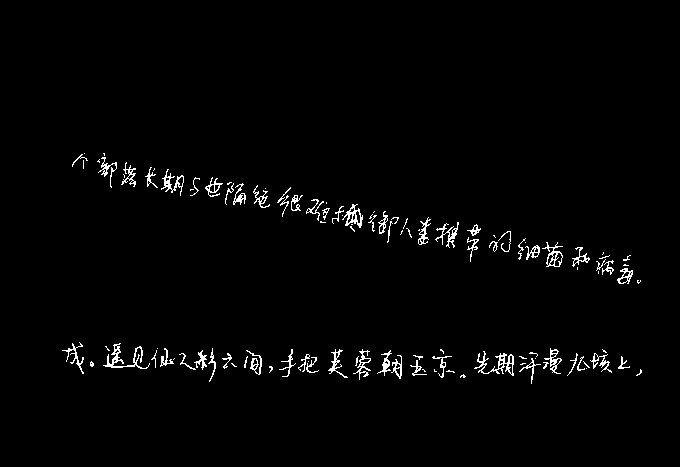 个部落长期与世隔绝很难抵御人类携带的细菌和病毒。
成。遥见仙人彩云间，手把芙蓉朝玉京。先期汗漫九垓上，